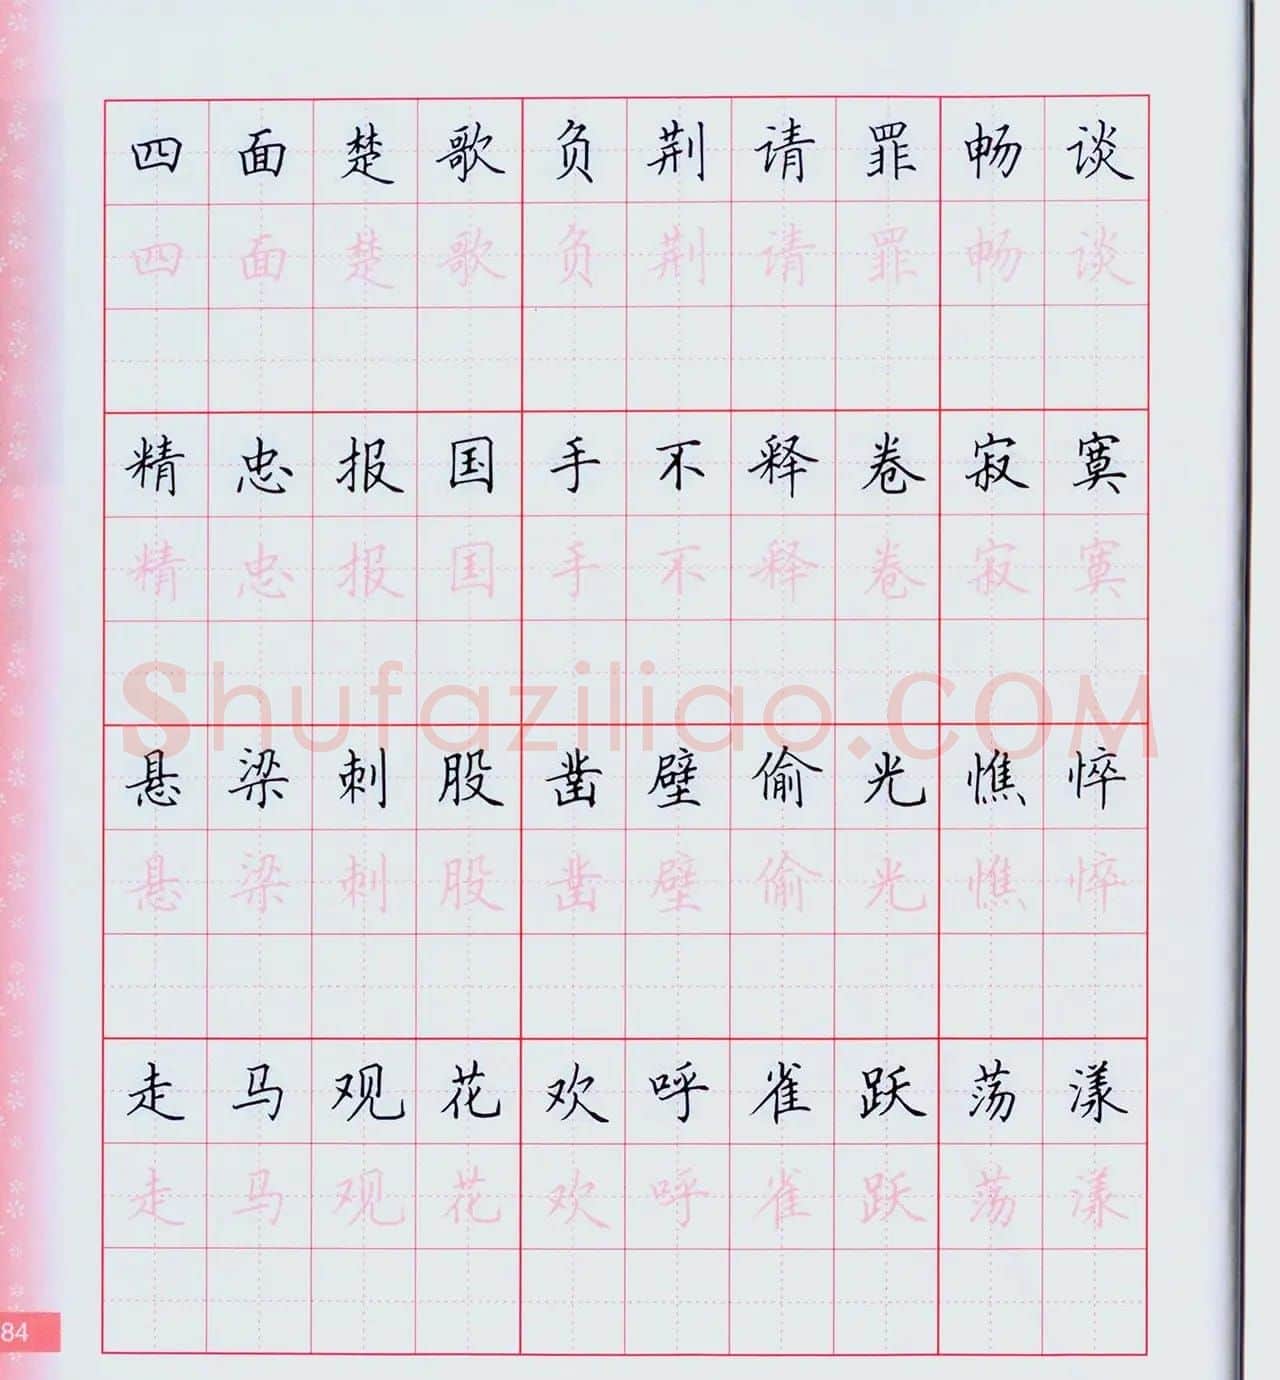 四面楚歌负荆请罪畅谈
四面楚歌负荆请罪畅谈
精忠报国手不释卷寂寞
精忠报国手不释卷寂寞
Shufaziliao.COM
悬梁刺股凿壁偷光憔悴
悬梁刺股凿壁偷光憔悴
走马观花欢呼雀跃荡漾
走马观花欢呼雀跃荡漾
84